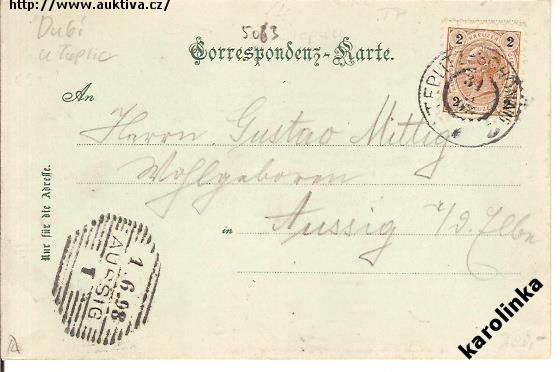 http://www.auktiva.cz/
Dubí
u Teplic
5063
Correspondenz-Karte.
2 KREUZER 2
TEPLITZ-SCHÖNAU
31
An
Herrn Gustav Mittig
Wohlgeboren
in Aussig a/d. Elbe
Nur für die Adresse.
1.6.98
AUSSIG
T
karolinka